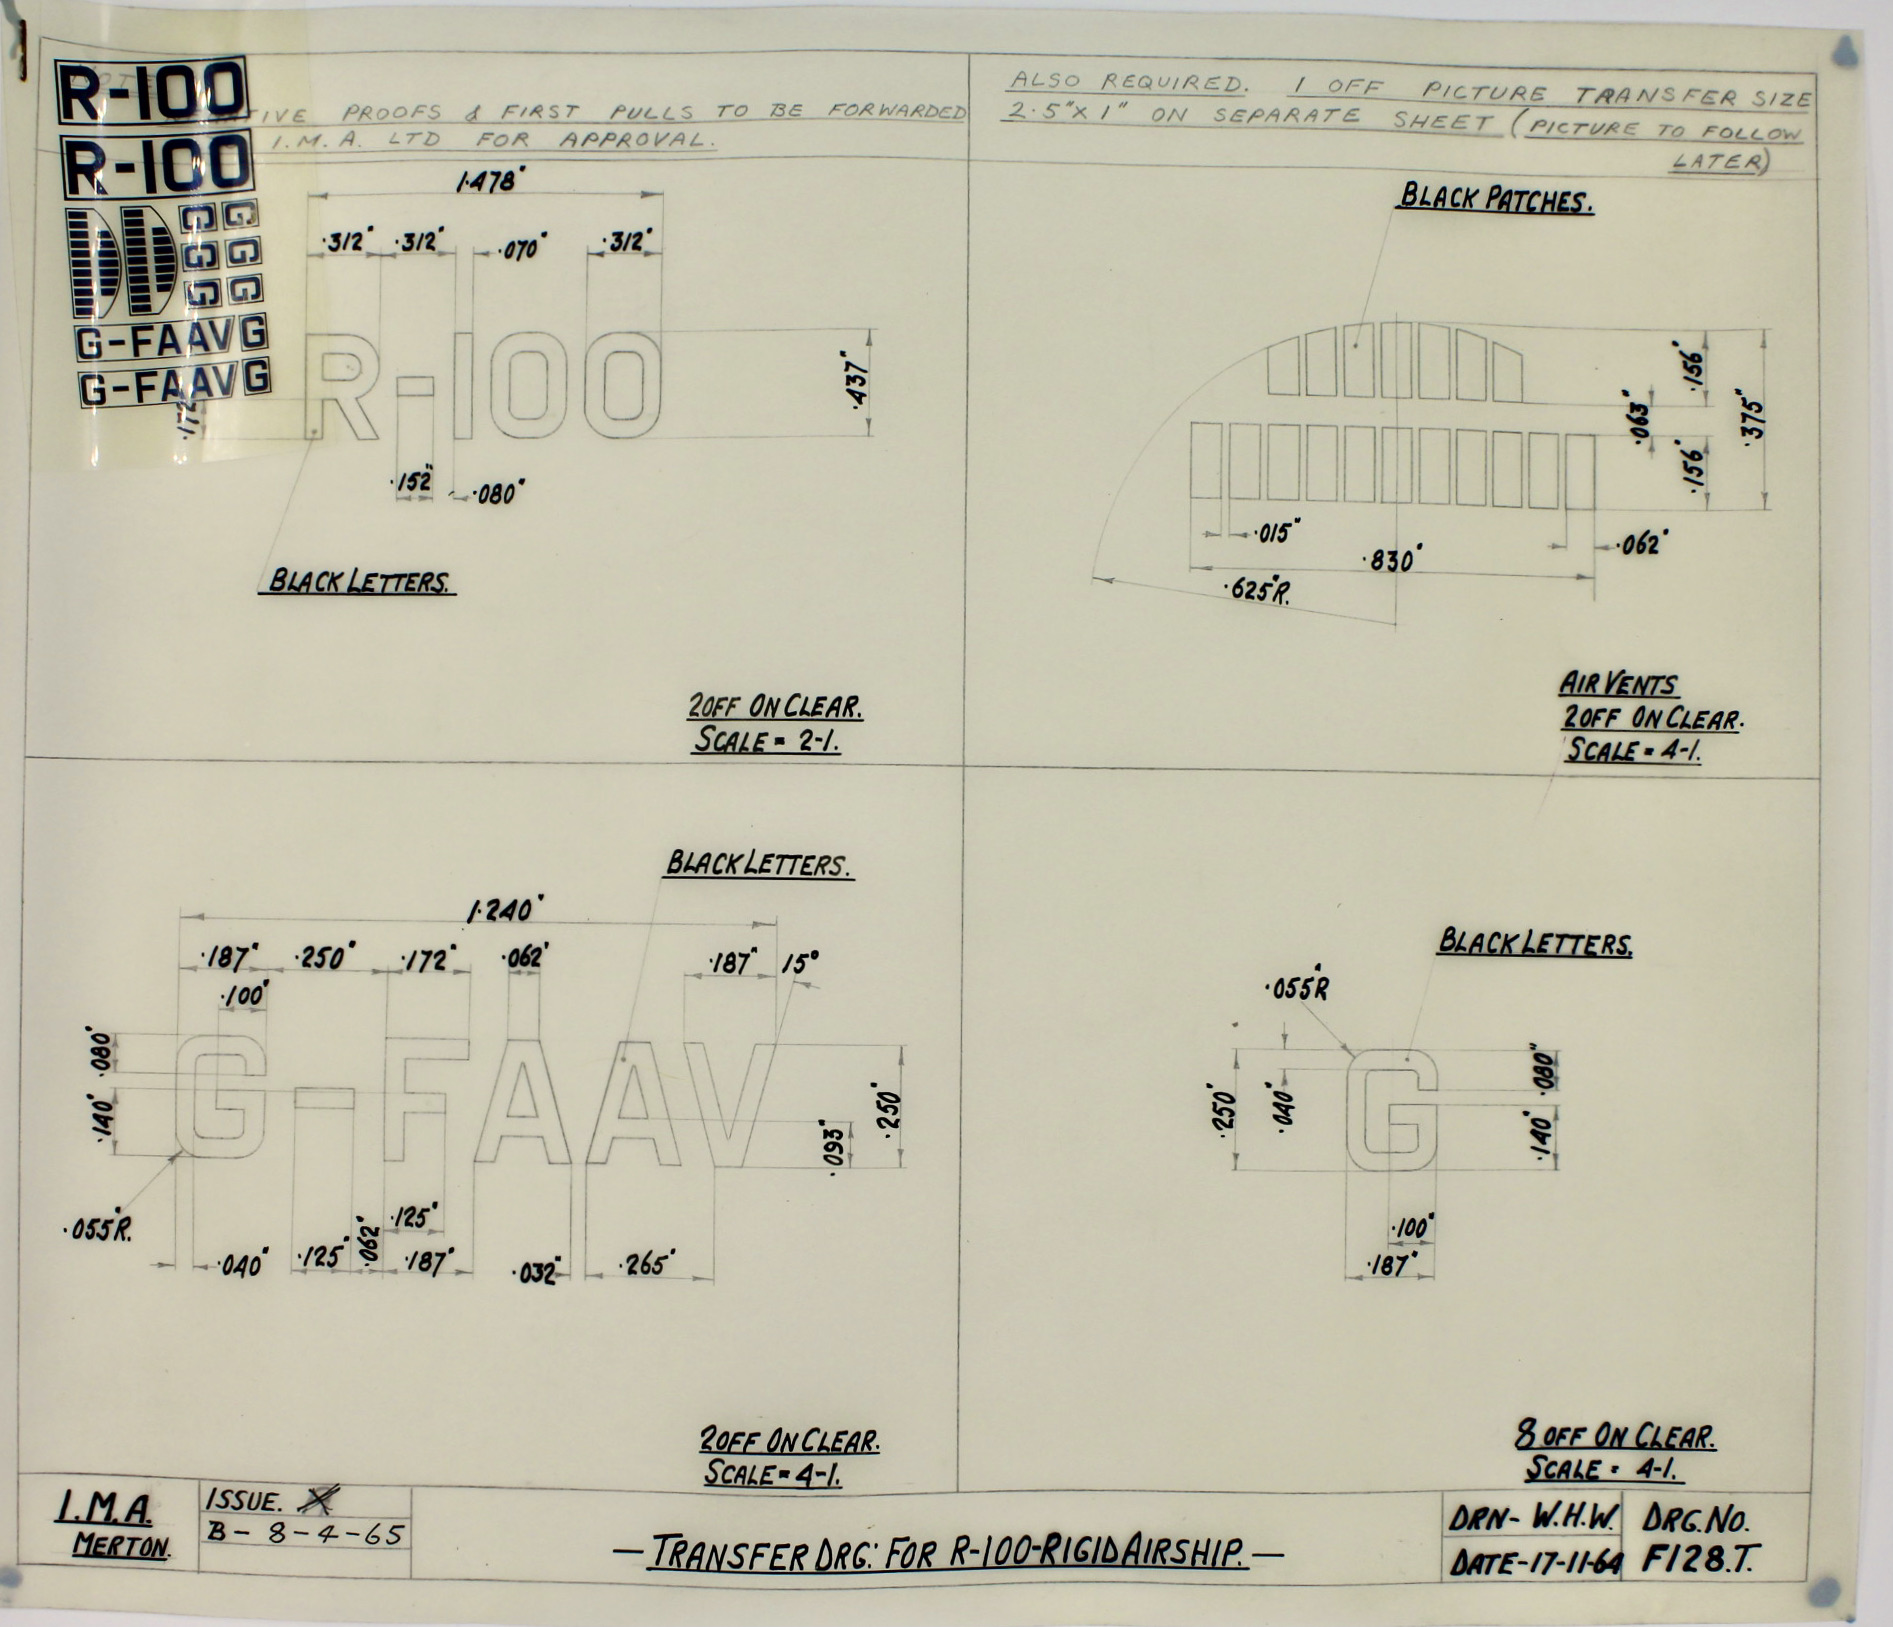 R-100
R-100
G G
G G
G G
G-FAAV G
G-FAAV G
NOTE
PROOFS & FIRST PULLS TO BE FORWARDED
I.M.A. LTD FOR APPROVAL.
1.478"
.312" .312" .070" .312"
R-100
.437"
.172
.152" .080"
BLACK LETTERS.
2 OFF ON CLEAR.
SCALE = 2-1.
ALSO REQUIRED. 1 OFF PICTURE TRANSFER SIZE
2.5" X 1" ON SEPARATE SHEET (PICTURE TO FOLLOW
LATER)
BLACK PATCHES.
.156"
.063"
.375"
.156"
.015"
.830"
.062"
.625"R.
AIR VENTS
2 OFF ON CLEAR.
SCALE = 4-1.
BLACK LETTERS.
1.240"
.187" .250" .172" .062" .187" 15°
.100"
.080"
.140"
G-FAAV
.093"
.250"
.055"R.
.040" .125" .062" .125"
.187" .032" .265"
2 OFF ON CLEAR.
SCALE = 4-1.
BLACK LETTERS.
.055"R
.250"
.040"
G
.080"
.140"
.100"
.187"
8 OFF ON CLEAR.
SCALE = 4-1.
I.M.A.
MERTON.
ISSUE.
B - 8 - 4 - 65
— TRANSFER DRG: FOR R-100-RIGID AIRSHIP. —
DRN - W.H.W.
DATE - 17-11-64
DRG. NO.
F128.T.